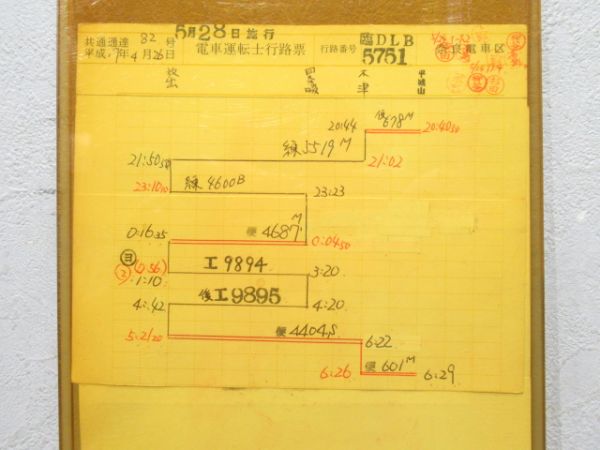 5月28日施行
共通通達 82 号
平成17年4月26日
電車運転士行路票
行路番号
臨DLB
5751
奈良電車区
放出
四条畷
木津
平城山
20:44 後678M 20:40 50
21:50 50 線5519M 21:02
23:10 10 線4600B 23:23
0:16 35 便4687M 0:04 50
(0:56)
1:10 工9894 3:20
4:42 後工9895 4:20
5:21 20 便4404S 6:22
6:26 便601M 6:29